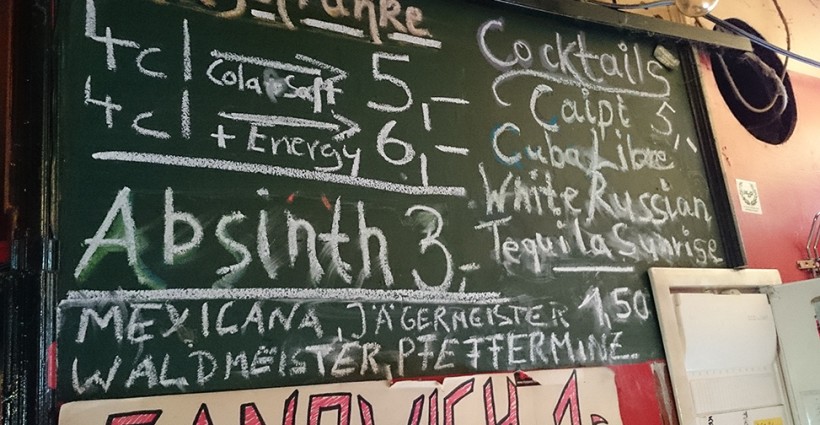 4cl Cola Saft 5,-
4cl + Energy 6,-
Absinth 3,-
MEXICANA, JÄGERMEISTER 1,50
WALDMEISTER, PFEFFERMINZ.
Cocktails
Caipi 5,-
Cuba Libre
White Russian
Tequila Sunrise
SANDWICH